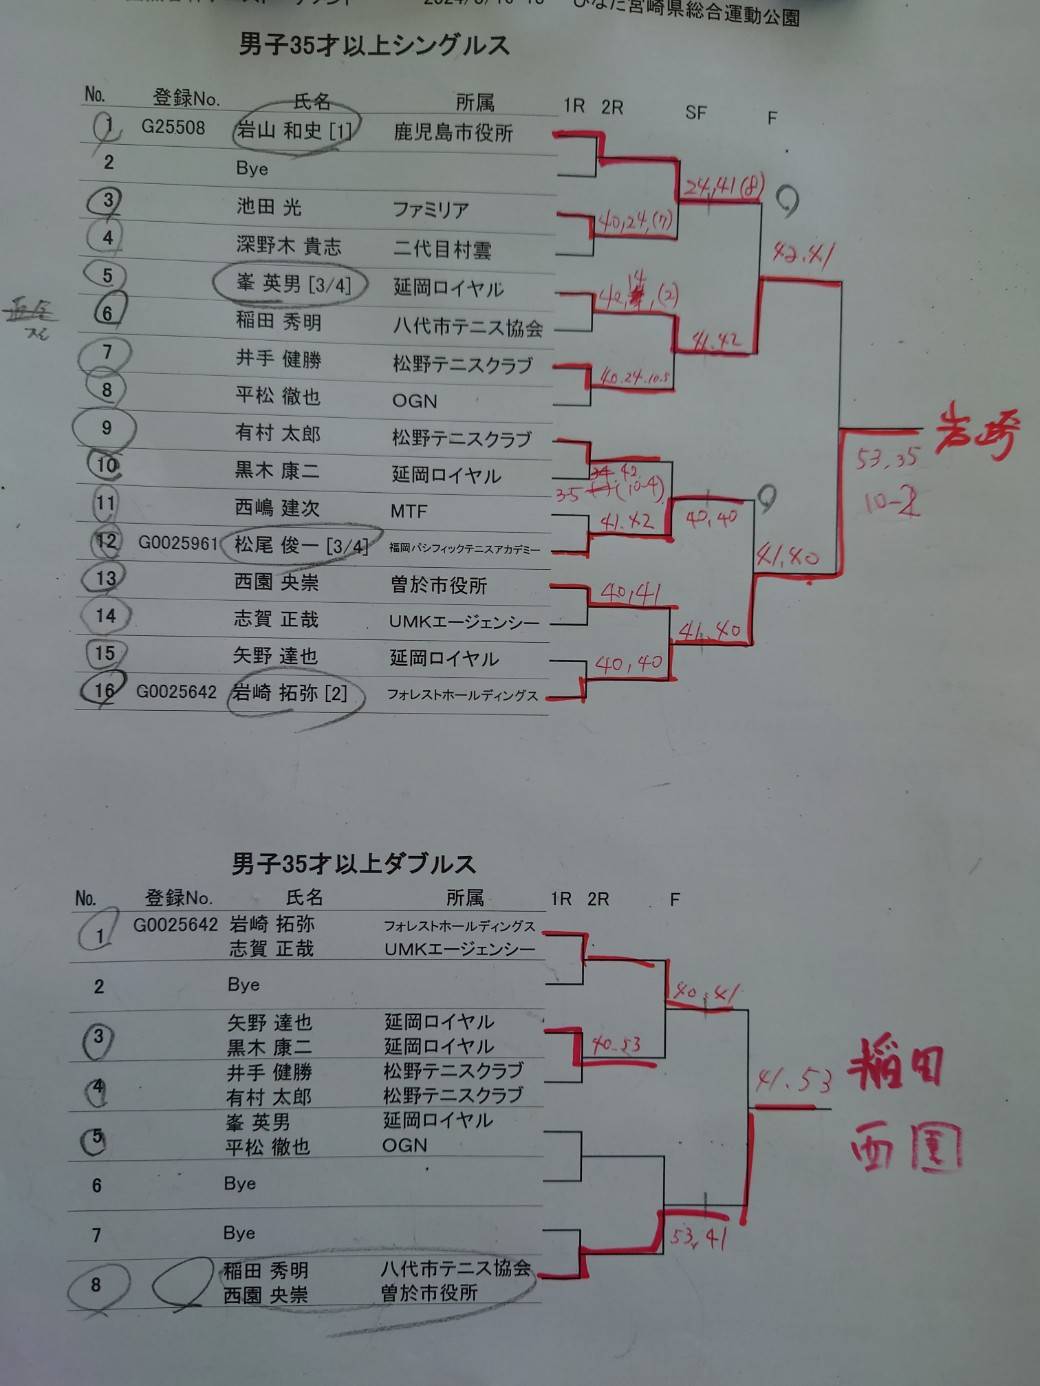 ひなた宮崎県総合運動公園
男子35才以上シングルス
No. 登録No. 氏名 所属 1R 2R SF F
1 G25508 岩山 和史 [1] 鹿児島市役所
2 Bye
24,41(8)
3 池田 光 ファミリア
40,24,(7)
4 深野木 貴志 二代目村雲
42.41
5 峯 英男 [3/4] 延岡ロイヤル
6 稲田 秀明 八代市テニス協会
41.42
7 井手 健勝 松野テニスクラブ
40.24.10.5
8 平松 徹也 OGN
9 有村 太郎 松野テニスクラブ
岩崎
53,35
10 黒木 康二 延岡ロイヤル
35 (10-4)
10-2
11 西嶋 建次 MTF
41.42
40,40
12 G0025961 松尾 俊一 [3/4] 福岡パシフィックテニスアカデミー
41,40
13 西園 央崇 曽於市役所
40,41
14 志賀 正哉 UMKエージェンシー
41.40
15 矢野 達也 延岡ロイヤル
40,40
16 G0025642 岩崎 拓弥 [2] フォレストホールディングス
男子35才以上ダブルス
No. 登録No. 氏名 所属 1R 2R F
1 G0025642 岩崎 拓弥 フォレストホールディングス
志賀 正哉 UMKエージェンシー
2 Bye
40,41
3 矢野 達也 延岡ロイヤル
黒木 康二 延岡ロイヤル
40-53
4 井手 健勝 松野テニスクラブ
有村 太郎 松野テニスクラブ
41.53
稲田
西園
5 峯 英男 延岡ロイヤル
平松 徹也 OGN
6 Bye
7 Bye
53,41
8 稲田 秀明 八代市テニス協会
西園 央崇 曽於市役所